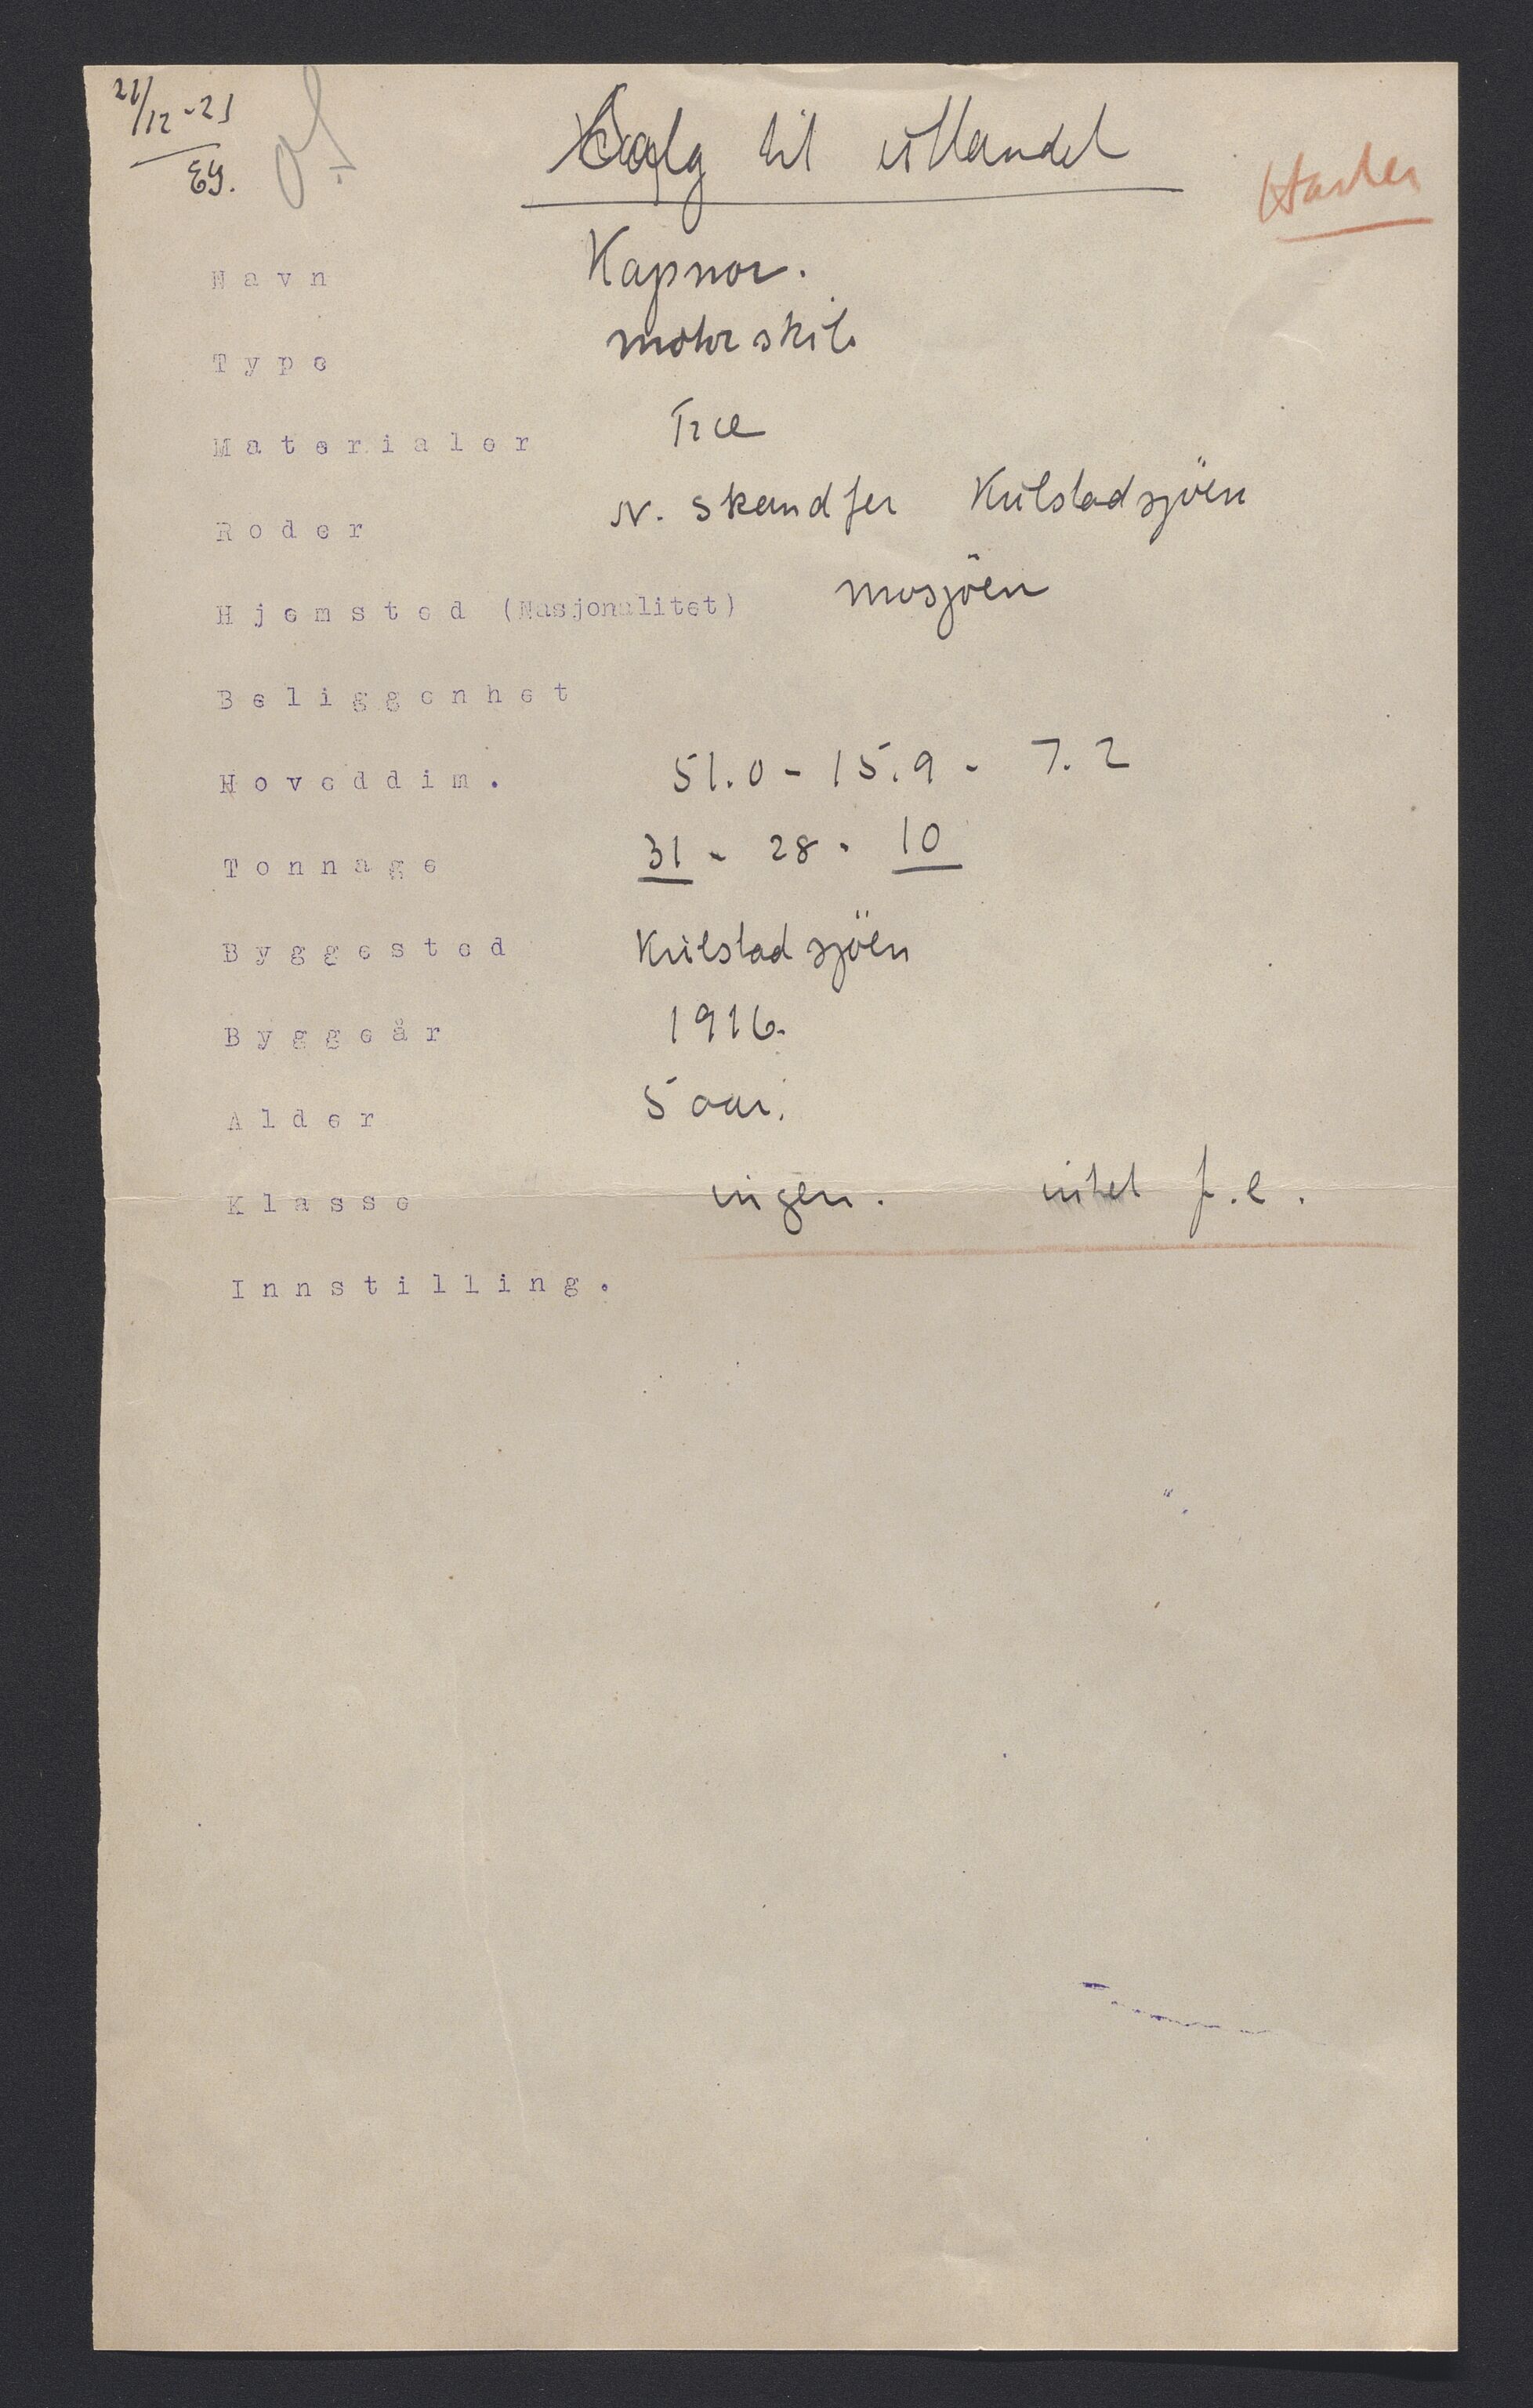 21/12-21
Eg.
Salg til utlandet
Haster
Navn Kapnor.
Type motor skib
Materialer Træ
Reder N. Skandfer Kulstadsjöen
Hjemsted (Nasjonalitet) Mosjöen
Beliggenhet
Hoveddim. 51.0 - 15.9 - 7.2
Tonnage 31 - 28 - 10
Byggested Kulstadsjöen
Byggeår 1916.
Alder 5 aar.
Klasse ingen. intet f.e.
Innstilling.